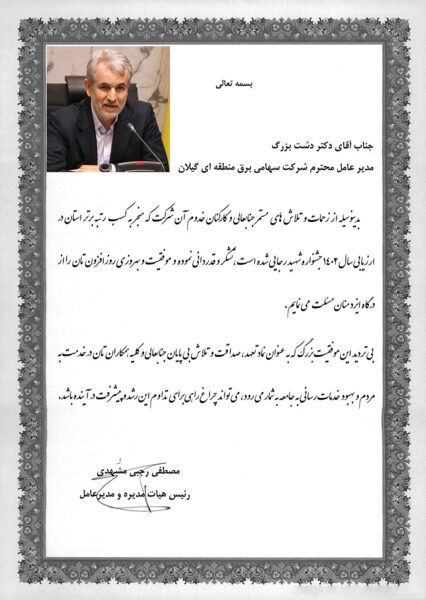 بسمه تعالی
جناب آقای دکتر دشت بزرگ
مدیر عامل محترم شرکت سهامی برق منطقه ای گیلان
بدینوسیله از زحمات و تلاش های مستمر جنابعالی و کارکنان خدوم آن شرکت که منجر به کسب رتبه برتر استان در
ارزیابی سال ۱۴۰۲ جشنواره شهید رجایی شده است، تشکر و قدردانی نموده و موفقیت و بهروزی روزافزون تان را از
درگاه ایزد منان مسئلت می نمایم.
بی تردید این موفقیت بزرگ که به عنوان نماد تعهد، صداقت و تلاش بی پایان جنابعالی و کلیه همکاران تان در خدمت به
مردم و بهبود خدمات رسانی به جامعه به شمار می رود، می تواند چراغ راهی برای تداوم این رشد و پیشرفت در آینده باشد.
مصطفی رجبی مشهدی
رئیس هیات مدیره و مدیرعامل